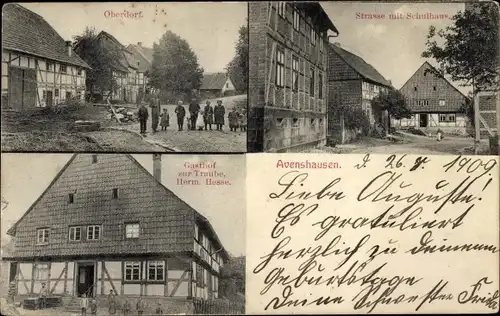 Oberdorf.
Strasse mit Schulhaus.
Gasthof
zur Traube,
Herm. Hesse.
Avenshausen.
d 26. 1909.
Liebe Auguste!
Es gratuliert
herzlich zu deinem
Geburtstage
Deine Schwester Frida